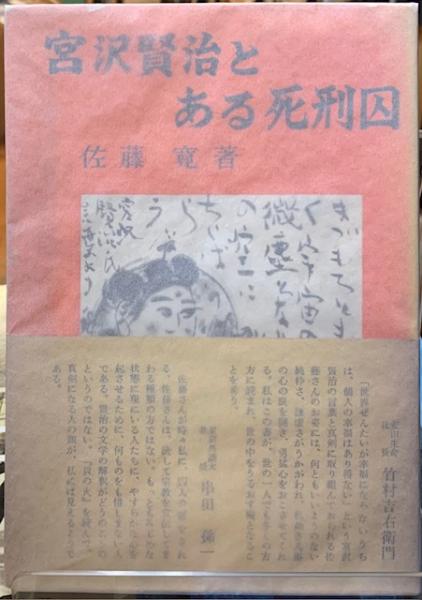 宮沢賢治と
ある死刑囚
佐藤寛著
まづもろともに
く宇宙の
微塵となり
の空に
ちらば
らう
宮沢
賢治氏
安田生命
社長 竹村吉右衛門
「世界ぜんたいが幸福にならないうち
は、個人の幸福はあり得ない」という宮沢
賢治の言葉と真剣に取り組んでおられる佐
藤さんのお姿には、何ともいいようのない
純粋さ、謙虚さがうかがわれ、私共の
の心の扉を開き、勇猛心をおこさせてくれ
る。私はこの書が、世の一人でも多くの方
方に読まれ、世の中をうるおす糧となるこ
とを祈る。
教授 串田孫一
佐藤さんが時々私に、囚人の話をされ
る。佐藤さんは、決して宗教を宣伝してま
わる種類の方ではない。もっともみじめな
状態に現にいる人たちに、やすらかな心を
起させるために、何ものをも惜しまない人
である。賢治の文学の解釈がどうのこうの
というのではない。
真剣になる人の顔が、私には見えるようで
ある。